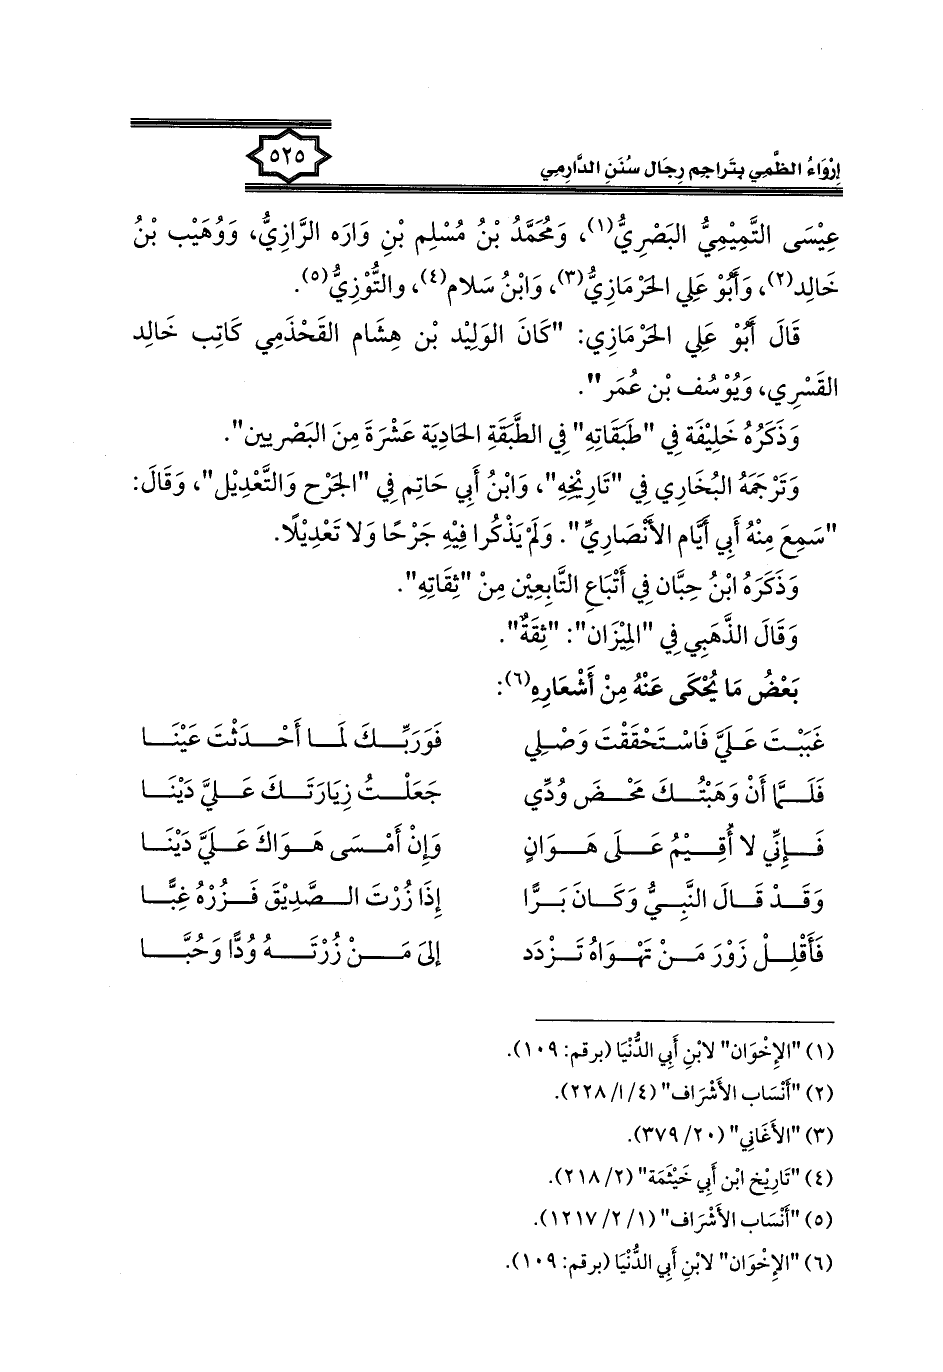 إِرْوَاءُ الظَّمِي بِتَراجِمِ رِجَالِ سُنَنِ الدَّارِمِي
٥٢٥
عِيْسَى التَّمِيْمِيُّ البَصْرِيُّ(١)، وَمُحَمَّدُ بْنُ مُسْلِم بْنِ وَارَه الرَّازِيُّ، وَوُهَيْب بْنُ
خَالِد(٢)، وَأَبُوْ عَلِي الحَرْمَازِيُّ(٣)، وَابْنُ سَلام(٤)، والتُّوْزِيُّ(٥).
قَالَ أَبُوْ عَلِي الحَرْمَازِي: "كَانَ الوَلِيْد بْن هِشَام القَحْذَمِي كَاتِب خَالِد
القَسْرِي، وَيُوْسُف بْن عُمَر".
وَذَكَرَهُ خَلِيْفَة فِي "طَبَقَاتِهِ" فِي الطَّبَقَةِ الحَادِيَة عَشْرَة مِنَ البَصْرِيين".
وَتَرْجَمَهُ البُخَارِي فِي "تَارِيْخِهِ"، وَابْنُ أَبِي حَاتِم فِي "الجَرْح وَالتَّعْدِيْل"، وَقَالَ:
"سَمِعَ مِنْهُ أَبِي أَيَّام الأَنْصَارِيِّ". وَلَمْ يَذْكُرا فِيْهِ جَرْحًا وَلا تَعْدِيْلًا.
وَذَكَرَهُ ابْنُ حِبَّان فِي أَتْبَاعِ التَّابِعِيْن مِنْ "ثِقَاتِهِ".
وَقَالَ الذَّهَبِي فِي "المِيْزَان": "ثِقَةٌ".
بَعْضُ مَا يُحْكَى عَنْهُ مِنْ أَشْعَارِهِ(٦):
غَبَيْتَ عَلَيَّ فَاسْتَحْقَقْتَ وَصْلِي فَوَرَبِّكَ لَمَا أَحْدَثْتَ عَيْنَا
فَلَمَّا أَنْ وَهَبْتُكَ مَحْضَ وُدِّي جَعَلْتُ زِيَارَتَكَ عَلَيَّ دَيْنَا
فَإِنِّي لا أُقِيْمُ عَلَى هَوَانٍ وَإِنْ أَمْسَى هَوَاكَ عَلَيَّ دَيْنَا
وَقَدْ قَالَ النَّبِيُّ وَكَانَ بَرًّا إِذَا زُرْتَ الصَّدِيْقَ فَزُرْهُ غِبًّا
فَأَقْلِلْ زَوْرَ مَنْ تَهْوَاهُ تَزْدَد إِلَى مَنْ زُرْتَهُ وُدًّا وَحُبَّا
(١) "الإِخْوَان" لابْنِ أَبِي الدُّنْيَا (برقم: ١٠٩).
(٢) "أَنْسَاب الأَشْرَاف" (٤/ ١/ ٢٢٨).
(٣) "الأَغَانِي" (٢٠/ ٣٧٩).
(٤) "تَارِيْخ ابْن أَبِي خَيْثَمَة" (٢/ ٢١٨).
(٥) "أَنْسَاب الأَشْرَاف" (١/ ٢/ ١٢١٧).
(٦) "الإِخْوَان" لابْنِ أَبِي الدُّنْيَا (برقم: ١٠٩).